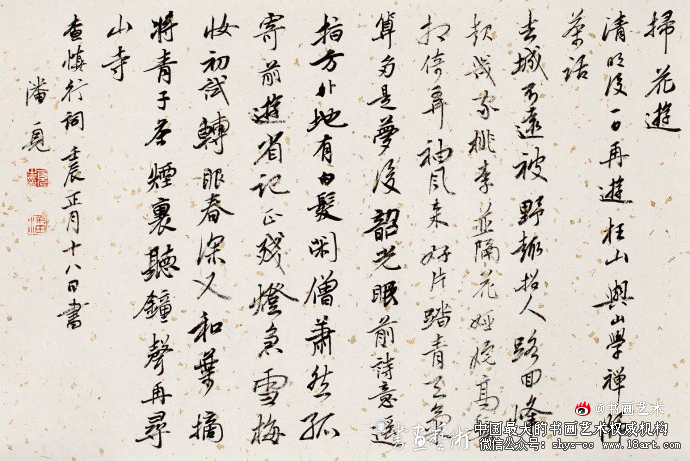 掃花遊
清明後一日再遊枉山與山學禪師
茶話
去城不遠被野趣招人路回峰
家桃李並隔花婭姹高
倚弄袖風来好片踏青天氣
算多是夢後韶光眼前詩意還
指方外地有白髮閑僧蕭然孤
寄前遊省記正殘燈急雪梅
妝初試轉眼春深又和葉摘
將青子茶煙裏聽鐘聲再尋
山寺
查慎行詞 壬辰正月十八日書
潘
@书画艺术
中国最大的书画艺术权威机构
微信公众号: shys-cc www.shys.com